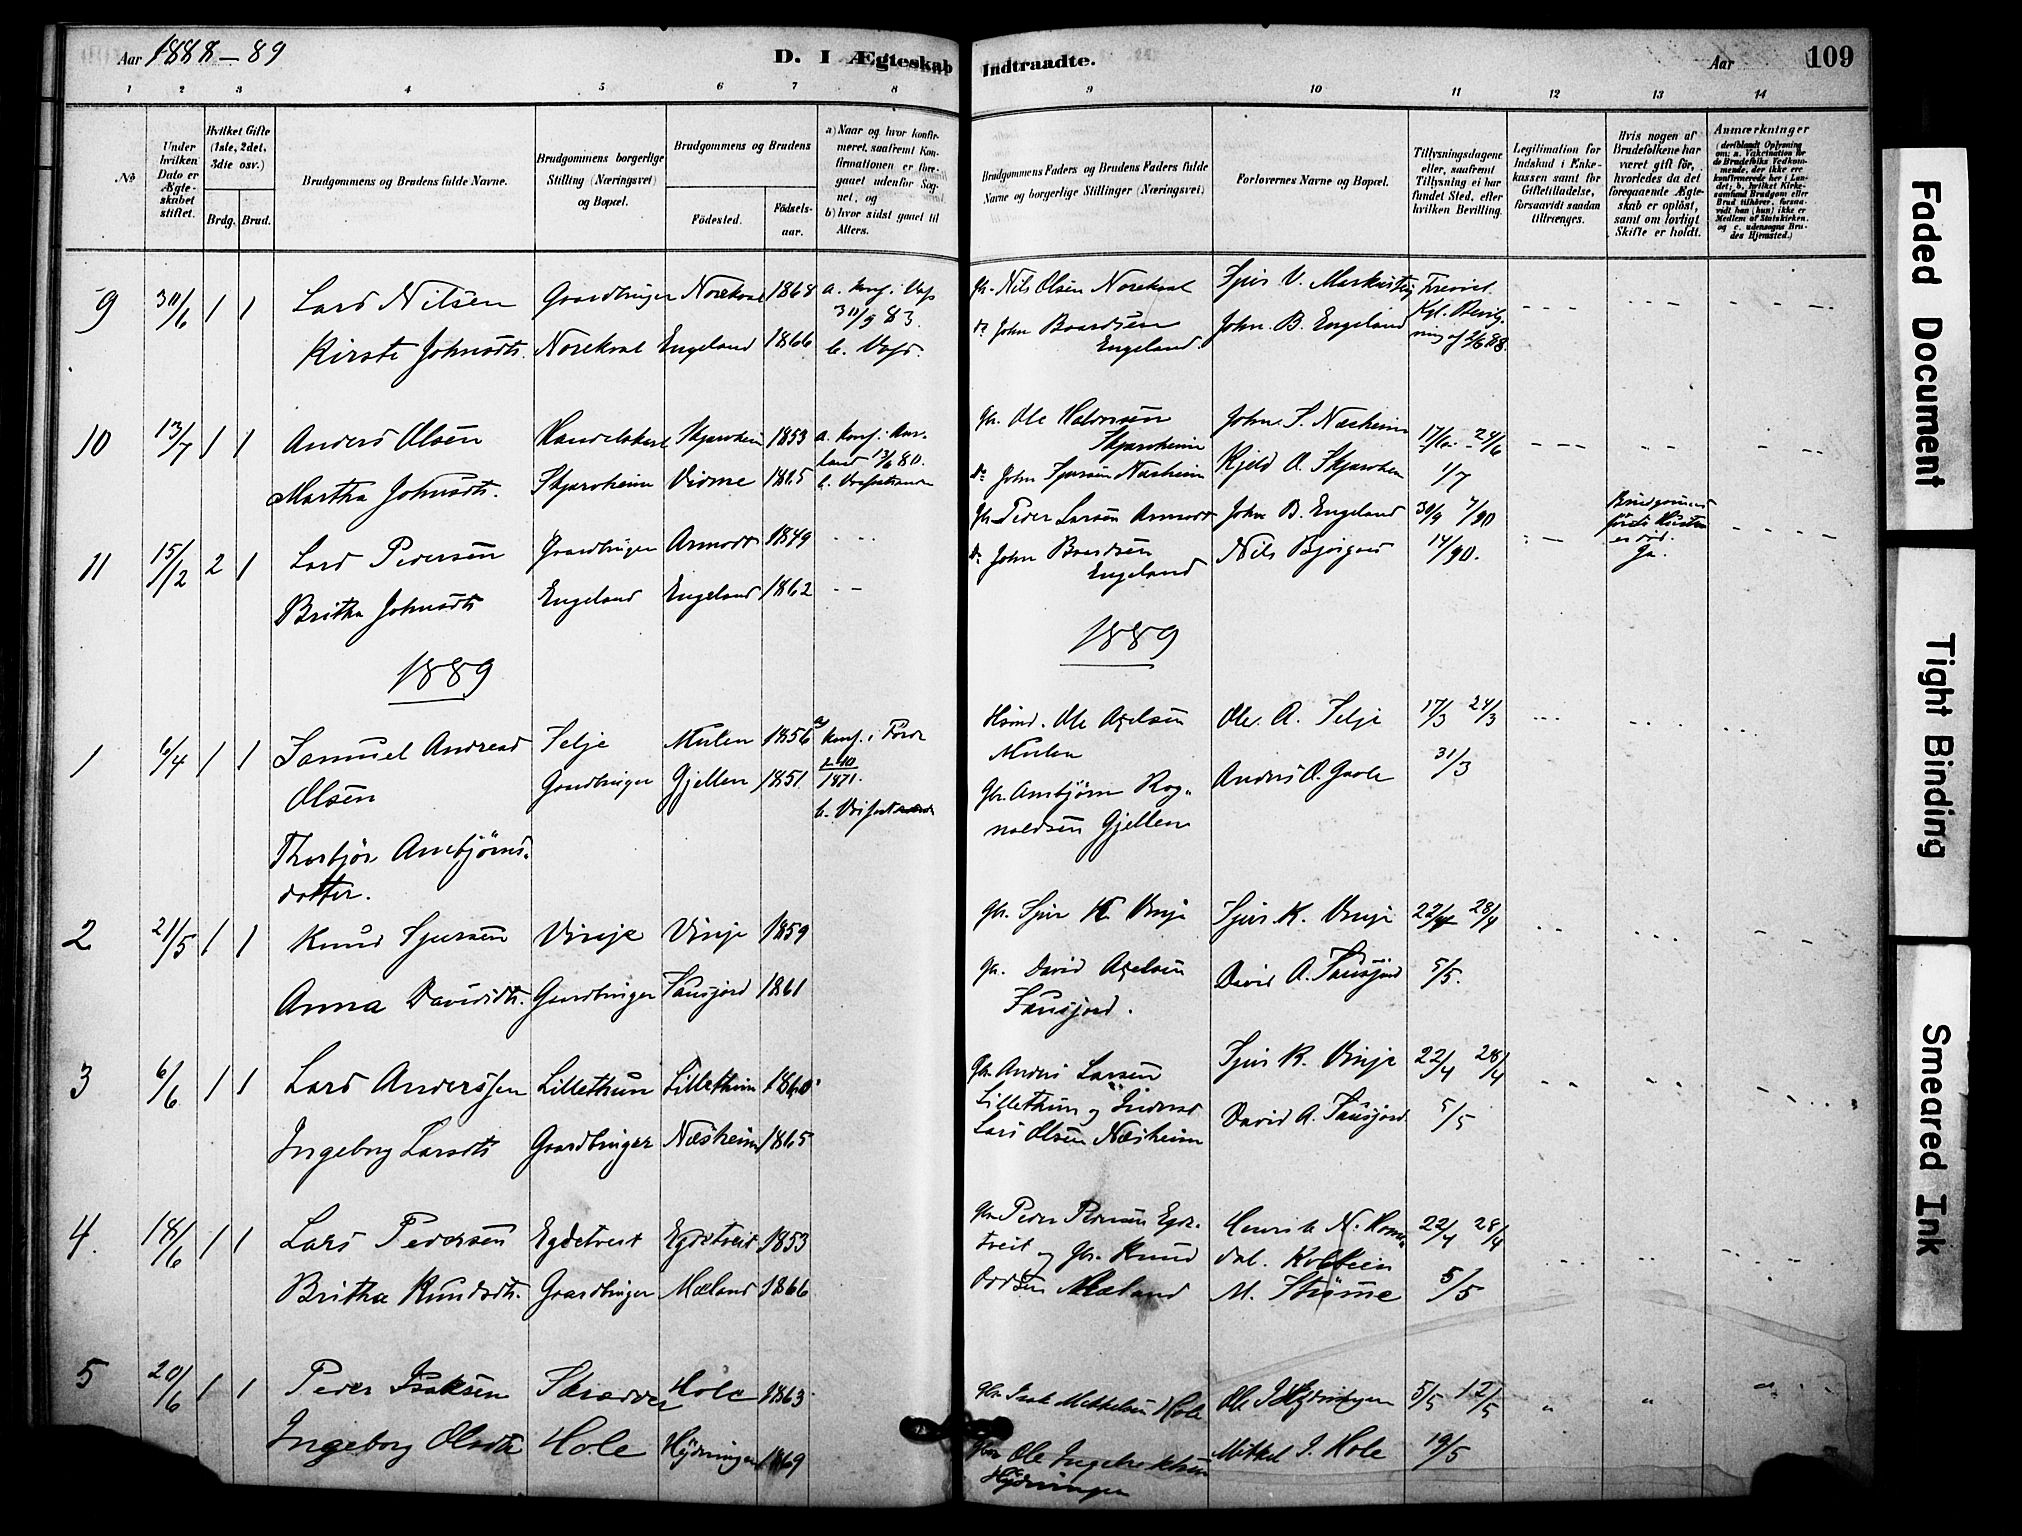 Aar 1888-89
D. I Ægteskab Indtraadte.
Aar 109
1 2 3 4 5 6 7 8 9 10 11 12 13 14
No
Under hvilken Dato er Ægteskabet stiftet.
Hvilket Gifte (1ste, 2det, 3die osv.)
Brdg. Brud.
Brudgommens og Brudens fulde Navne.
Brudgommens borgerlige Stilling (Næringsvei) og Bopæl.
Brudgommens og Brudens
Fødested.
Fødselsaar.
a) Naar og hvor konfirmeret, saafremt Konfirmationen er foregaaet udenfor Sognet, og
b) hvor sidst gaaet til Alters.
Brudgommens Faders og Brudens Faders fulde Navne og borgerlige Stillinger (Næringsvei)
Forlovernes Navne og Bopæl.
Tillysningsdagene eller, saafremt Tillysning ei har fundet Sted, efter hvilken Bevilling.
Legitimation for Indskud i Enkekassen samt for Giftetilladelse, forsaavidt saadan tiltrænges.
Hvis nogen af Brudefolkene har været gift før, hvorledes da det foregaaende Ægteskab er opløst, samt om lovligt Skifte er holdt.
Anmærkninger (deriblandt Oplysning om: a. Vakcination for de Brudefolks Vedkommende, der ikke ere konfirmerede her i Landet; b. hvilket Kirkesamfund Brudgom eller Brud tilhører, forsaavidt han (hun) ikke er Medlem af Statskirken, og c. udensogns Brudes Hjemsted.)
9 30/6 1 1 Lars Nilsen Gaardbruger Norekval 1868 a. konf. i 30/9 83. Gbr. Nils Olsen Norekval Sjur V.
Kirsti Johnsdtr. Norekval Engeland 1866 b. do John Baardsen Engeland John B. Engeland Kgl. Bevilgning af
10 13/7 1 1 Anders Olsen Skjerveheim 1853 a. konf. i Aurland 80. Gbr. Ole John S. Næsheim 17/6 - 24/6
Martha Johnsdtr. Skjerveheim Vidme 1865 b. do John Sjursen Næsheim Kjeld O. 1/7
11 15/12 2 1 Lars Pedersen Gaardbruger Armodt 1849 Gbr. Peder Larsen Armodt John B. Engeland 30/9 7/90 Brudgommens første er død. Ja.
Britha Johnsdtr Engeland Engeland 1862 do John Baardsen Engeland Nils 14/90.
1889 1889
1 6/4 1 1 Samuel Andreas Olsen Selje Mulen 1856 a. konf. i Førde 1871. Ole Axelsen Mulen Ole. A. Selje 17/3 24/3
Thorbjør Arnbjørnsdotter. Gaardbruger Gjellen 1851 b. Gbr. Arnbjørn Rognaldsen Gjellen Anders O. 31/3
2 21/5 1 1 Knud Sjursen Vinje Vinje 1859 Gbr. Sjur K. Vinje Sjur K. Vinje 22/4 28/4
Anna Davidsdtr. Gaardbruger 1861 Gbr. David Axelsen David A. 5/5.
3 6/6 1 1 Lars Anderssen Lillethun Lillethun 1860 Gbr. Anders Larsen Lillethun og Sjur K. Vinje 22/4 28/4
Ingeborg Larsdtr Gaardbruger Næsheim 1865 Lars Olsen Næsheim David A. 5/5
4. 18/6 1 1 Lars Pedersen Egdetveit Egdetveit 1853 Gbr. Peder Pedersen Egdetveit og Gbr. Knud Henrik N. 22/4 28/4
Britha Knudsdtr. Gaardbruger Mæland 1866 Mæland M. 5/5
5 20/6 1 1 Peder Isaksen Skrædder Hole 1863 Gbr. Isak Mikkelsen Hole Ole I. 5/5 12/5
Ingeborg Olsdtr Hole Hydningen 1869 Gbr. Ole Ingebrektsen Hydningen Mikkel I. Hole 19/5
Faded Document
Tight Binding
Smeared Ink